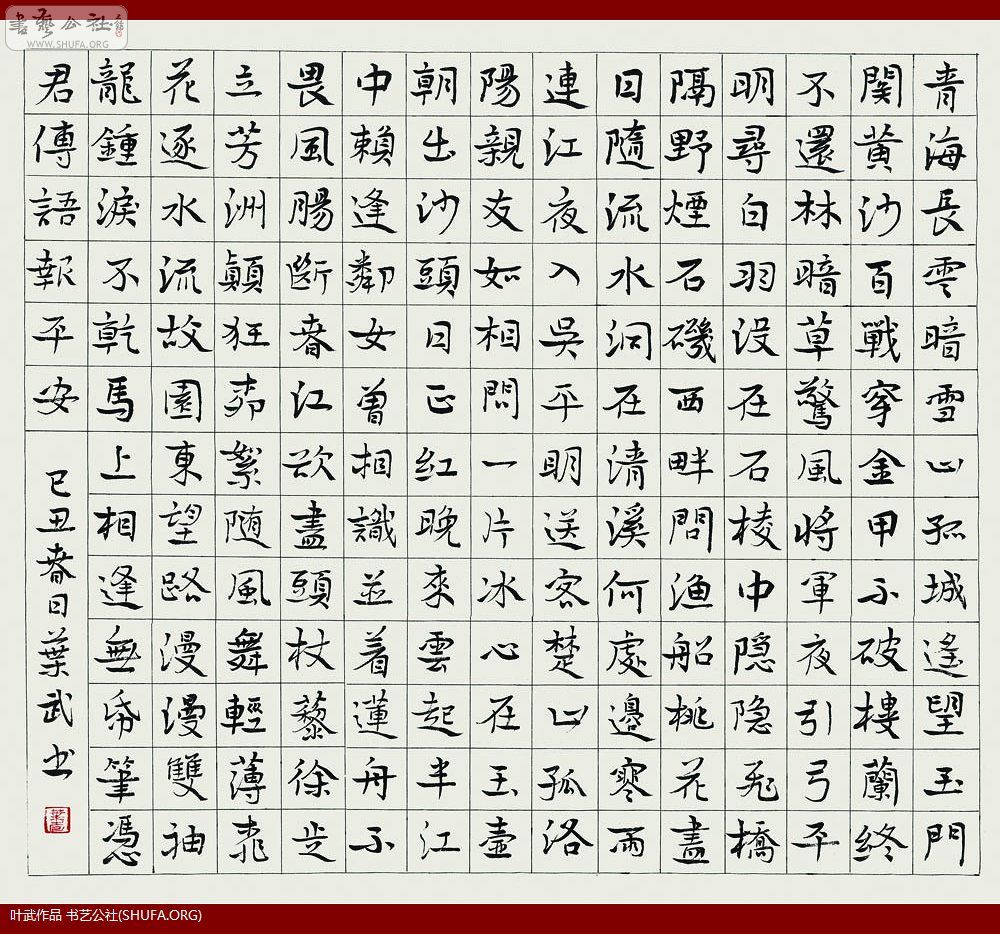 書藝公社
WWW.SHUFA.ORG
青海長雲暗雪山孤城遙望玉門
關黃沙百戰穿金甲不破樓蘭終
不還林暗草驚風將軍夜引弓平
明尋白羽沒在石棱中隐隐飛橋
隔野煙石磯西畔問漁船桃花盡
日隨流水洞在清溪何處邊寒雨
連江夜入吳平明送客楚山孤洛
陽親友如相問一片冰心在玉壺
朝出沙頭日正紅晚來雲起半江
中賴逢鄰女曾相識並着蓮舟不
畏風腸斷春江欲盡頭杖藜徐步
立芳洲顛狂柳絮随風舞輕薄桃
花逐水流故園東望路漫漫雙袖
龍鍾淚不乾馬上相逢無帋筆憑
君傳語報平安
己丑春日葉武书
叶武作品 书艺公社(SHUFA.ORG)